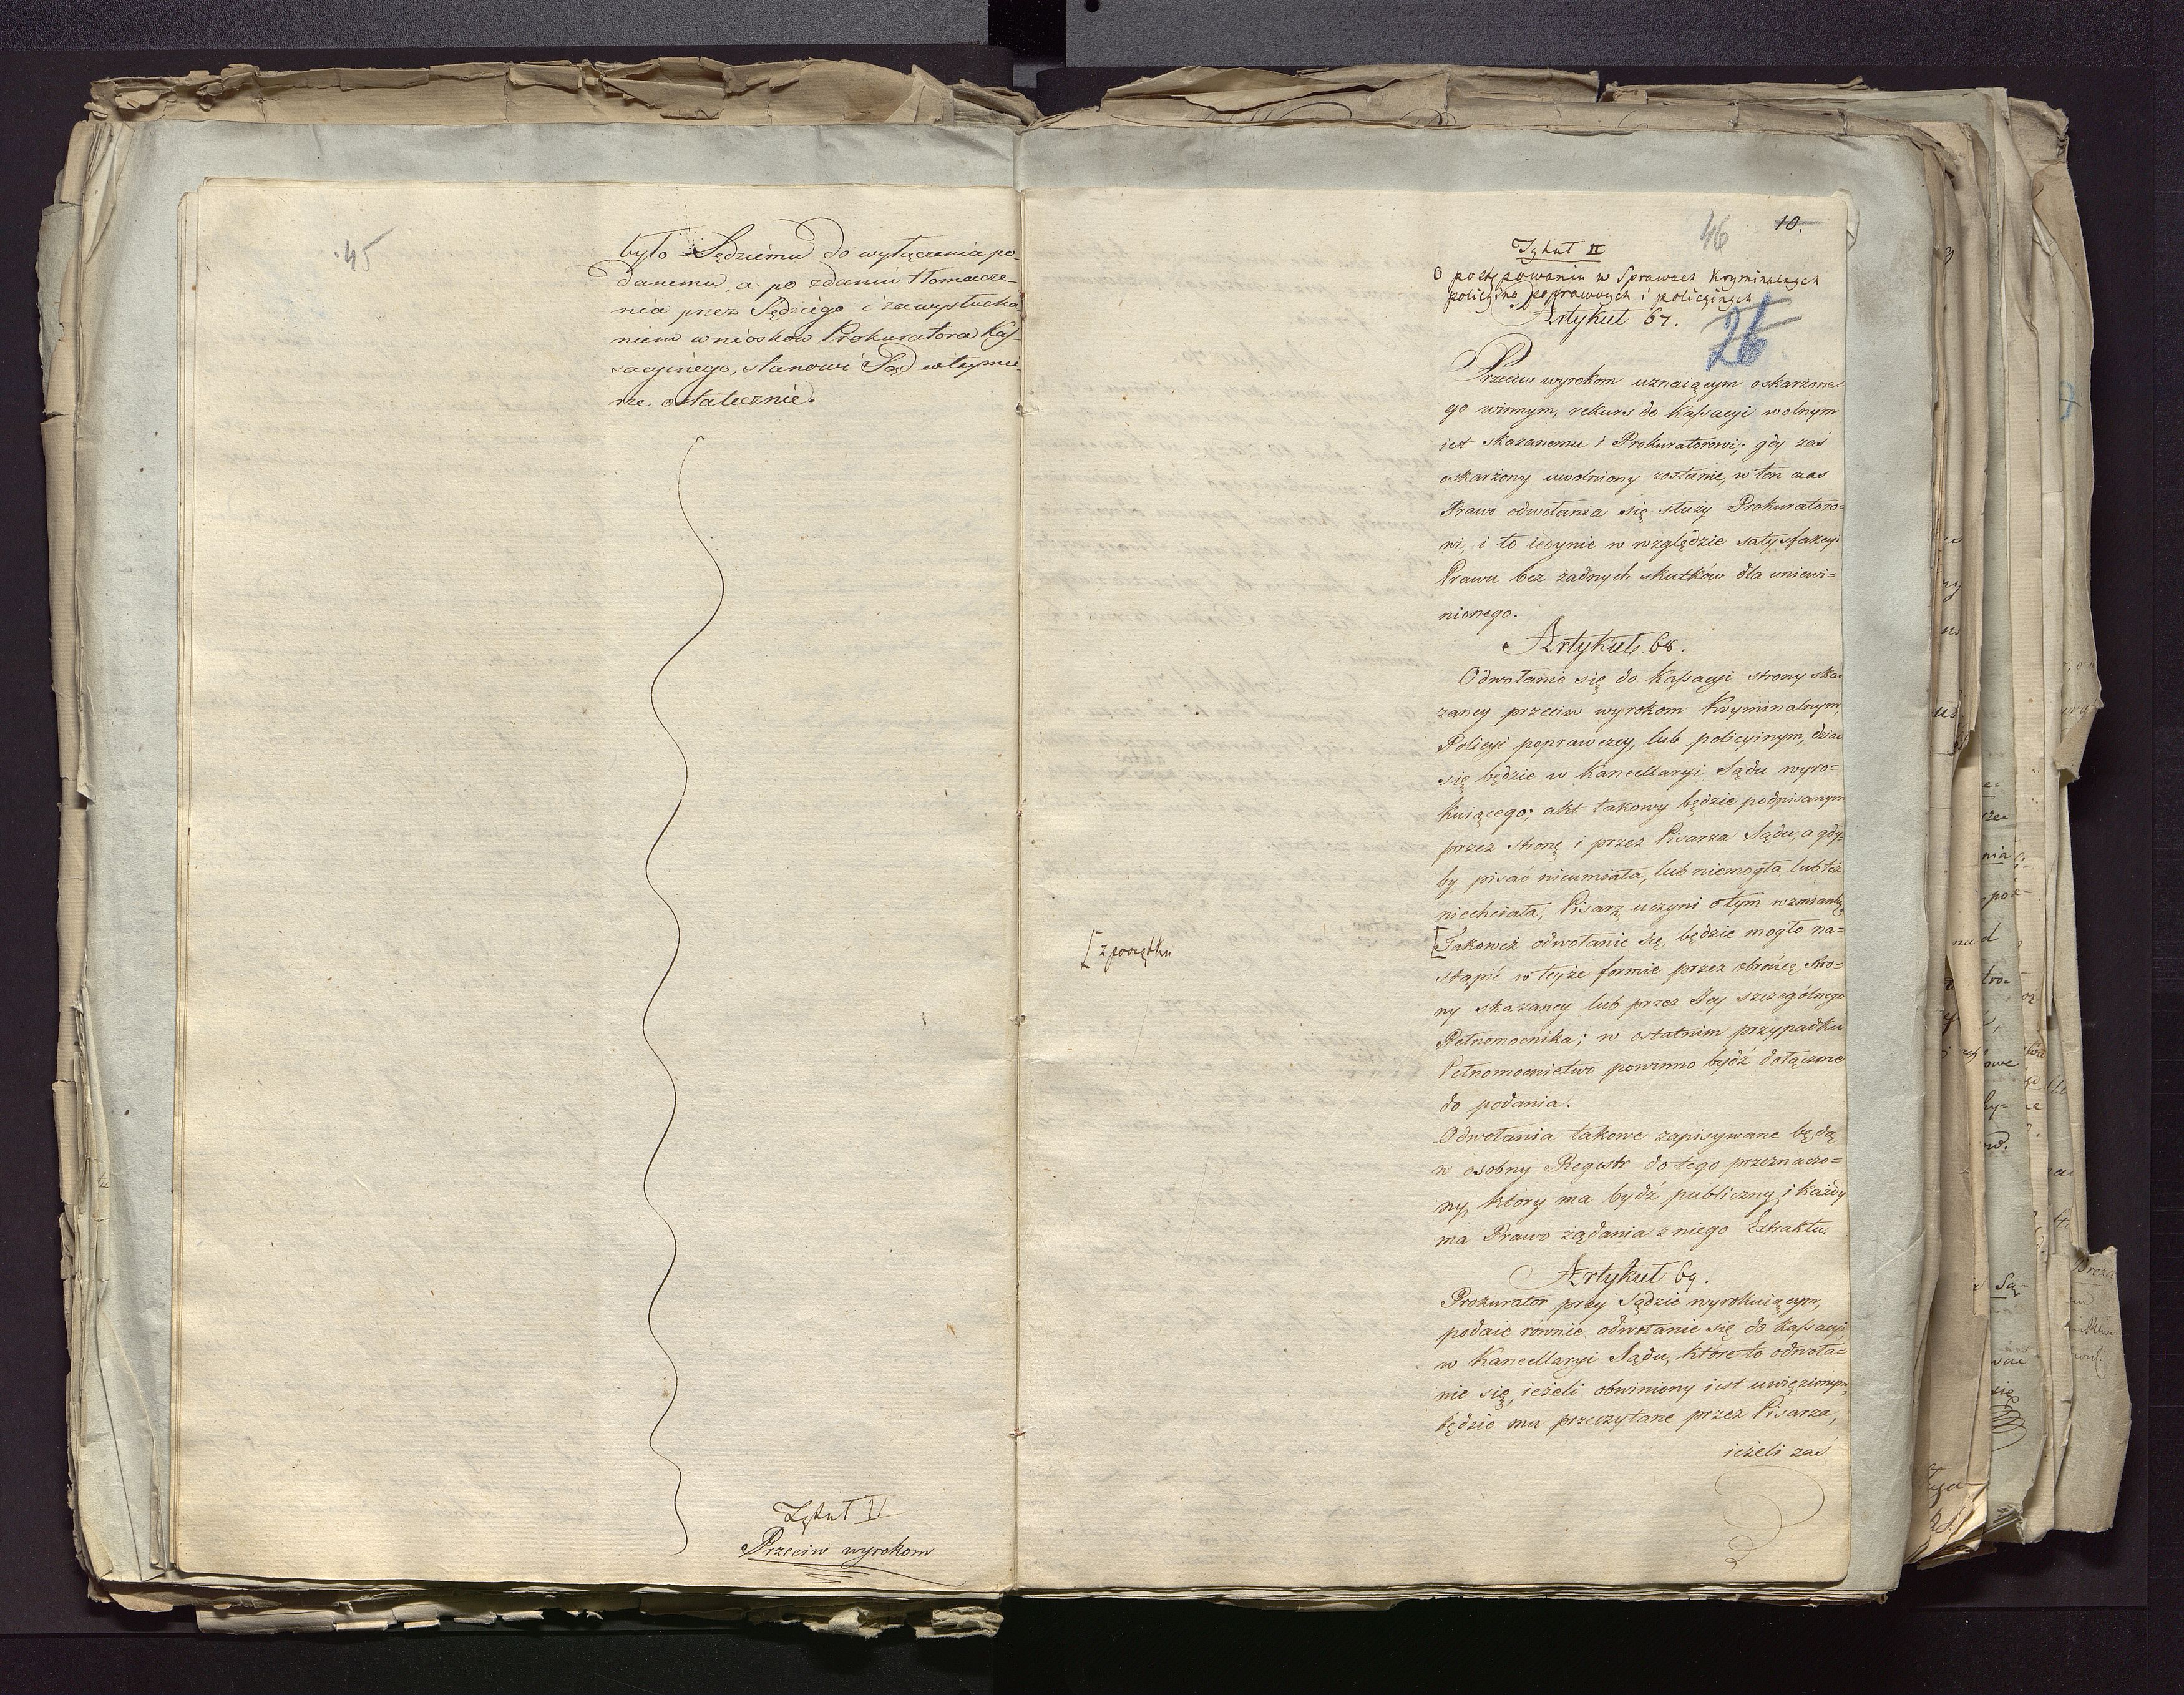 45
było Sędziemu do wyłączenia po-
danemu, a po zdaniu tłomacze-
nia przez Sędziego i zawysłucha
niem wniosków Prokuratora Kas-
sacyinego, stanowi Sąd w tey mie-
rze ostatecznie.
Tytuł II
Przeciw wyrokom
46 10.
Tytuł II
O postępowaniu w Sprawach Kryminalnych
policyino poprawczych i policyinych
Artykuł 67.
26
Przeciw wyrokom uznaiącym oskarżone-
go winnym, rekurs do Kassacyi wolnym
iest skazanemu i Prokuratorowi; gdy zaś
oskarżony uwolniony zostanie, w ten czas
Prawo odwołania się służy Prokuratoro=
wi, i to iedynie w względzie satysfakcyi
Prawu bez żadnych skutków dla uniewi=
nionego.
Artykuł 68.
Odwołanie się do Kassacyi strony ska-
zaney przeciw wyrokom Kryminalnym,
Policyi poprawczey, lub policyinym, dziać
się będzie w Kancellaryi Sądu wyro=
kuiącego; akt takowy będzie podpisanym
przez stronę i przez Pisarza Sądu, a gdy-
by pisać nieumiała, lub niemogła, lub też
niechciała, Pisarz uczyni o tym wzmiankę
[Takoweż odwołanie się, będzie mogło na=
stąpić w teyże formie przez obrońcę stro=
ny skazaney lub przez Jey szczególnego
Pełnomocnika; w ostatnim przypadku
Pełnomocnictwo powinno bydź dołączone
do podania.
[z początku
Odwołania takowe zapisywane będą
w osobny Regestr do tego przeznaczo=
ny, który ma bydź publiczny, i każdy
ma Prawo żądania z niego Extraktu.
Artykuł 69.
Prokurator przy Sądzie wyrokuiącym,
podaie równie odwołanie się do Kassacyi
w Kancellaryi Sądu, które to odwoła=
nie się, ieżeli obwiniony iest uwięzionym,
będzie mu przeczytane przez Pisarza,
ieżeli zaś